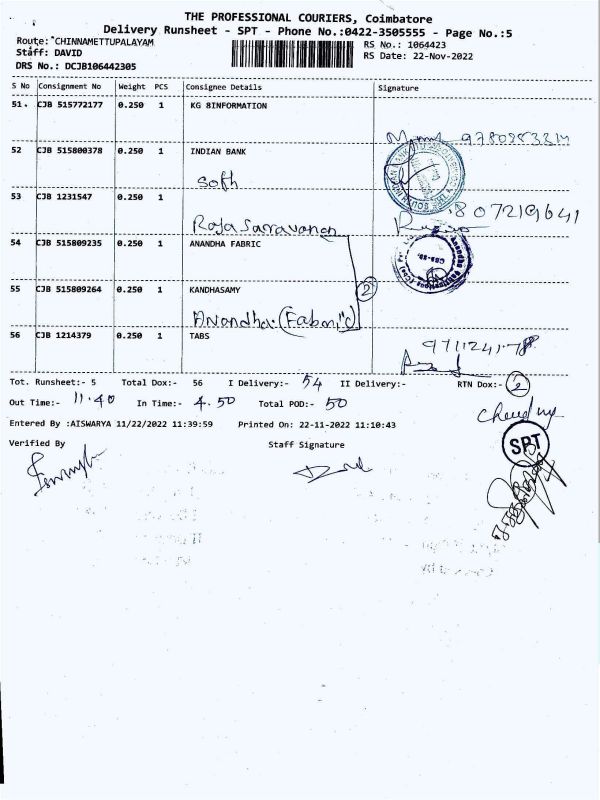 THE PROFESSIONAL COURIERS, Coimbatore
Delivery Runsheet - SPT - Phone No.:0422-3505555 - Page No.:5
Route: CHINNAMETTUPALAYAM
RS No.: 1064423
Staff: DAVID
RS Date: 22-Nov-2022
DRS No.: DCJB106442305
S No Consignment No Weight PCS Consignee Details Signature
51. CJB 515772177 0.250 1 KG 8INFORMATION
52 CJB 515800378 0.250 1 INDIAN BANK
Soth
53 CJB 1231547 0.250 1
807219641
Raja Sarravanan
54 CJB 515809235 0.250 1 ANANDHA FABRIC
55 CJB 515809264 0.250 1 KANDHASAMY
2
Anandha (Fabric)
56 CJB 1214379 0.250 1 TABS
Tot. Runsheet:- 5 Total Dox:- 56 I Delivery:- 54 II Delivery:- RTN Dox:- 2
Out Time:- 11.40 In Time:- 4.50 Total POD:- 50
Entered By :AISWARYA 11/22/2022 11:39:59 Printed On: 22-11-2022 11:10:43
Verified By Staff Signature
SPT